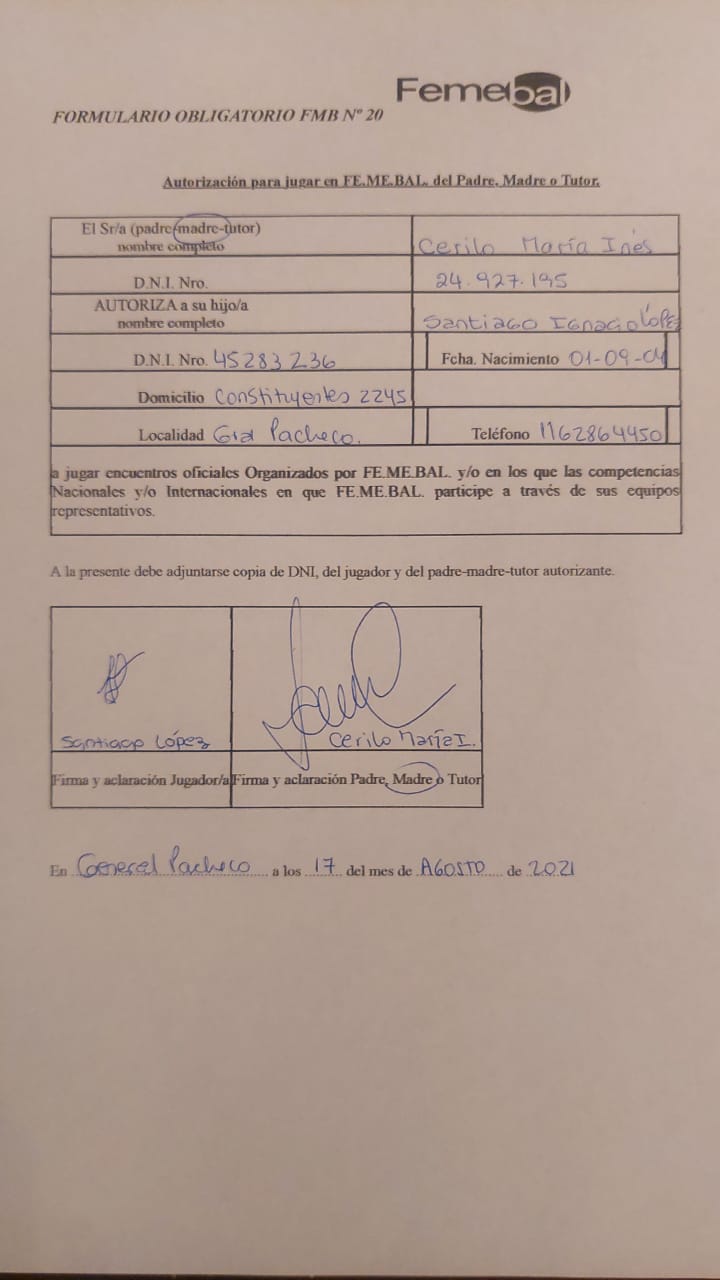 Femebal
FORMULARIO OBLIGATORIO FMB Nº 20
Autorización para jugar en FE.ME.BAL. del Padre, Madre o Tutor.
El Sr/a (padre-madre-tutor)
nombre completo
Cerilo María Inés
D.N.I. Nro.
24.927.195
AUTORIZA a su hijo/a
nombre completo
Santiago Ignacio López
D.N.I. Nro. 45283236
Fcha. Nacimiento 01-09-04
Domicilio Constituyentes 2245
Localidad Gral Pacheco.
Teléfono 1162864450
a jugar encuentros oficiales Organizados por FE.ME.BAL. y/o en los que las competencias
Nacionales y/o Internacionales en que FE.ME.BAL. participe a través de sus equipos
representativos.
A la presente debe adjuntarse copia de DNI, del jugador y del padre-madre-tutor autorizante.
Santiago López
Cerilo María I.
Firma y aclaración Jugador/a
Firma y aclaración Padre, Madre o Tutor
En General Pacheco a los 17 del mes de AGOSTO de 2021